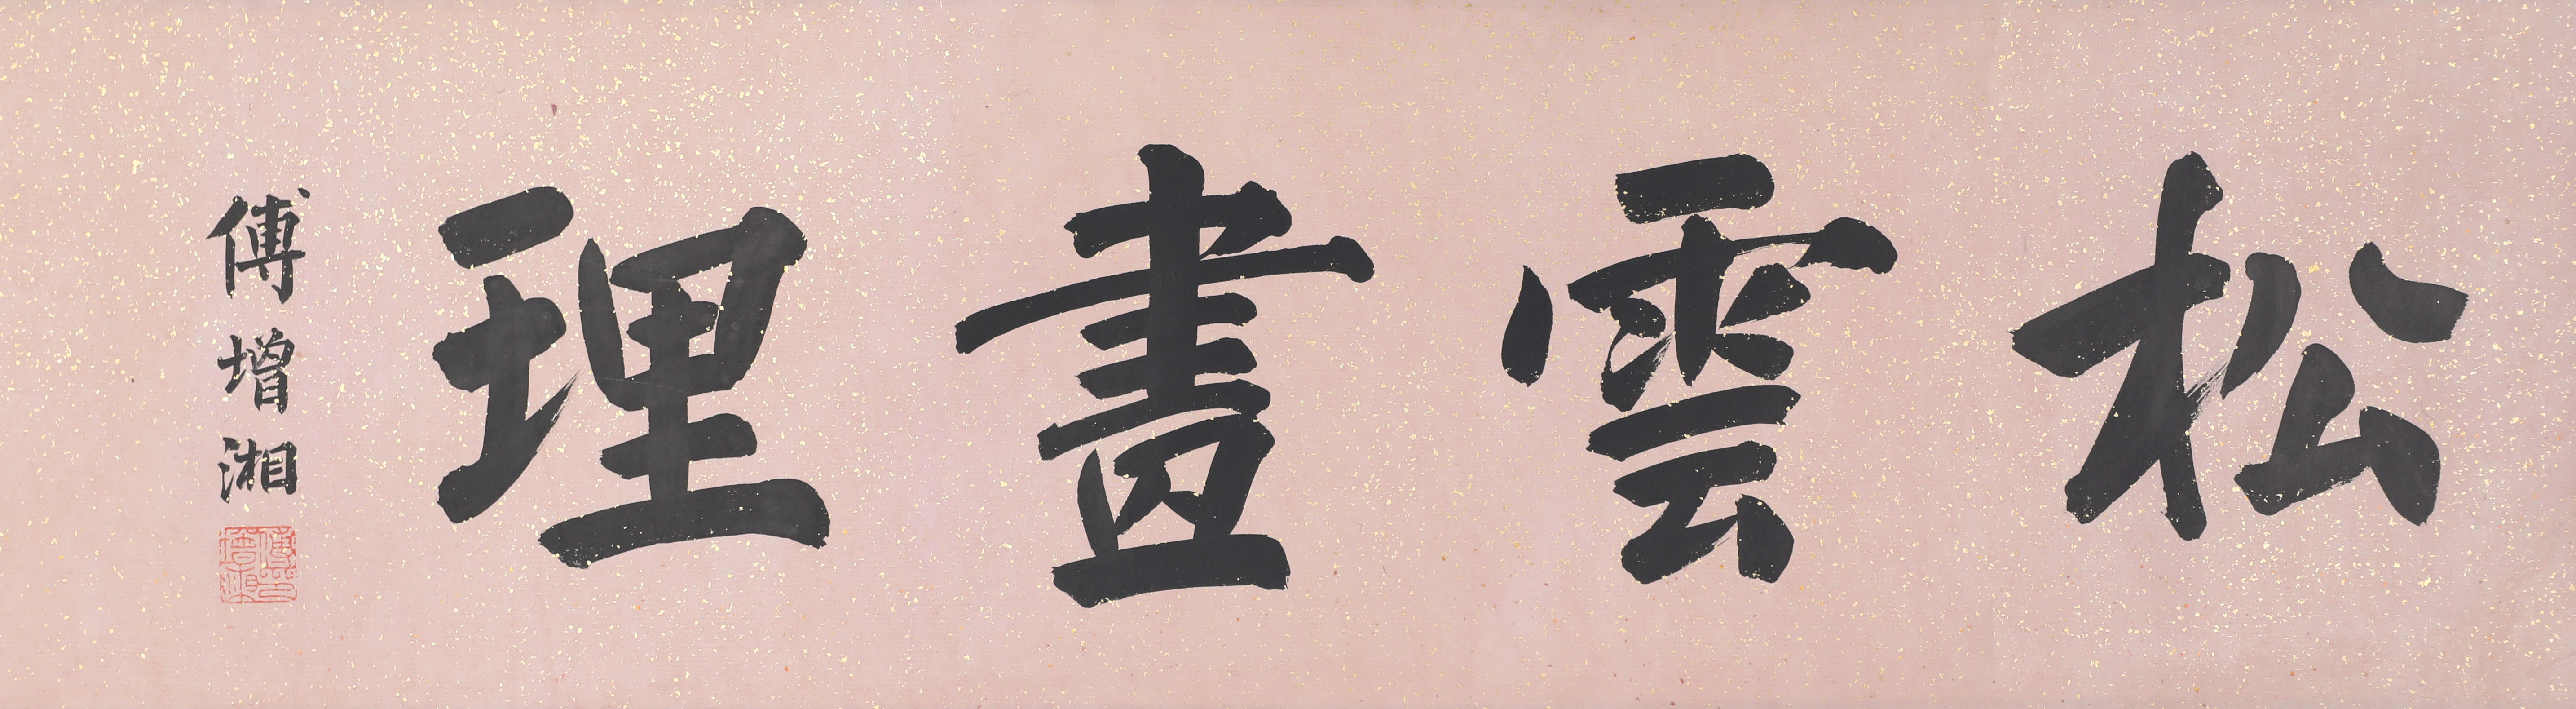 松雲畫理
傅增湘